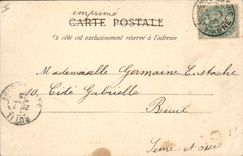 imprimé
CARTE POSTALE
Ce côté est exclusivement réservé à l'adresse
Mademoiselle Germaine Eustache
10, Cité Gabrielle
Rueil
Seine et Oise
RUEIL